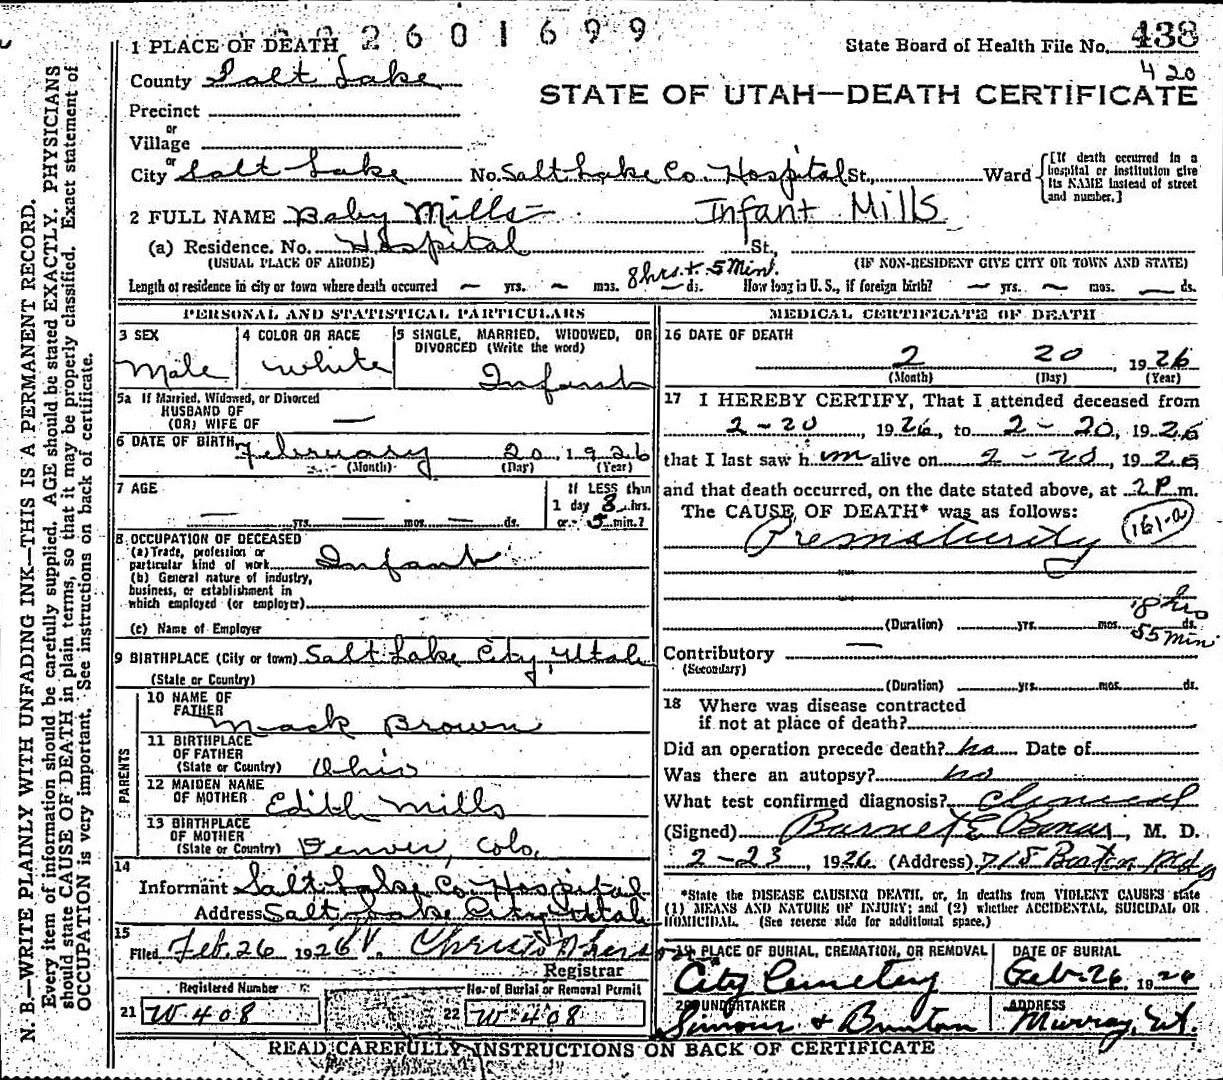 2601699
1 PLACE OF DEATH
State Board of Health File No. 438
County Salt Lake
420
STATE OF UTAH—DEATH CERTIFICATE
Precinct
or
Village
or
City Salt Lake No. Salt Lake Co. Hospital St., Ward
[If death occurred in a hospital or institution give its NAME instead of street and number.]
2 FULL NAME Baby Mills Infant Mills
(a) Residence. No. Hospital St.,
(USUAL PLACE OF ABODE) (IF NON-RESIDENT GIVE CITY OR TOWN AND STATE)
Length of residence in city or town where death occurred — yrs. — mos. 8 hrs. + 5 Min. ds. How long in U. S., if foreign birth? — yrs. — mos. — ds.
PERSONAL AND STATISTICAL PARTICULARS
3 SEX
Male
4 COLOR OR RACE
White
5 SINGLE, MARRIED, WIDOWED, OR DIVORCED (Write the word)
Infant
5a If Married, Widowed, or Divorced
HUSBAND OF
(OR) WIFE OF —
6 DATE OF BIRTH February 20 1926
(Month) (Day) (Year)
7 AGE
— yrs. — mos. — ds.
If LESS than
1 day 8 hrs.
or 5 min.?
8 OCCUPATION OF DECEASED
(a) Trade, profession or
particular kind of work Infant
(b) General nature of industry,
business, or establishment in
which employed (or employer)
(c) Name of Employer
9 BIRTHPLACE (City or town) Salt Lake City, Utah
(State or Country)
PARENTS
10 NAME OF
FATHER Mack Brown
11 BIRTHPLACE
OF FATHER
(State or Country) Ohio
12 MAIDEN NAME
OF MOTHER Edith Mills
13 BIRTHPLACE
OF MOTHER
(State or Country) Denver, Colo.
14
Informant Salt Lake Co. Hospital
Address Salt Lake City, Utah
15
Filed Feb. 26 1926
Registrar
Registered Number
21 W 408
No. of Burial or Removal Permit
22 W 408
MEDICAL CERTIFICATE OF DEATH
16 DATE OF DEATH
2 20, 1926
(Month) (Day) (Year)
17 I HEREBY CERTIFY, That I attended deceased from
2-20, 1926, to 2-20, 1926
that I last saw h im alive on 2-20, 1926
and that death occurred, on the date stated above, at 2 P. m.
The CAUSE OF DEATH* was as follows:
Prematurity
161-a
8 hrs
(Duration) yrs. mos. ds.
55 Min
Contributory —
(Secondary)
(Duration) yrs. mos. ds.
18 Where was disease contracted
if not at place of death?
Did an operation precede death? no Date of
Was there an autopsy? no
What test confirmed diagnosis? Clinical
(Signed) Barnet E Bonar, M. D.
2-23, 1926 (Address) 718 Boston Bldg
*State the DISEASE CAUSING DEATH, or, in deaths from VIOLENT CAUSES state
(1) MEANS AND NATURE OF INJURY; and (2) whether ACCIDENTAL, SUICIDAL OR
HOMICIDAL. (See reverse side for additional space.)
19 PLACE OF BURIAL, CREMATION, OR REMOVAL
City Cemetery
DATE OF BURIAL
Feb. 26, 1926
20 UNDERTAKER
ADDRESS
Murray, Ut.
READ CAREFULLY INSTRUCTIONS ON BACK OF CERTIFICATE
N. B.—WRITE PLAINLY WITH UNFADING INK—THIS IS A PERMANENT RECORD.
Every item of information should be carefully supplied. AGE should be stated EXACTLY. PHYSICIANS
should state CAUSE OF DEATH in plain terms, so that it may be properly classified. Exact statement of
OCCUPATION is very important. See instructions on back of certificate.